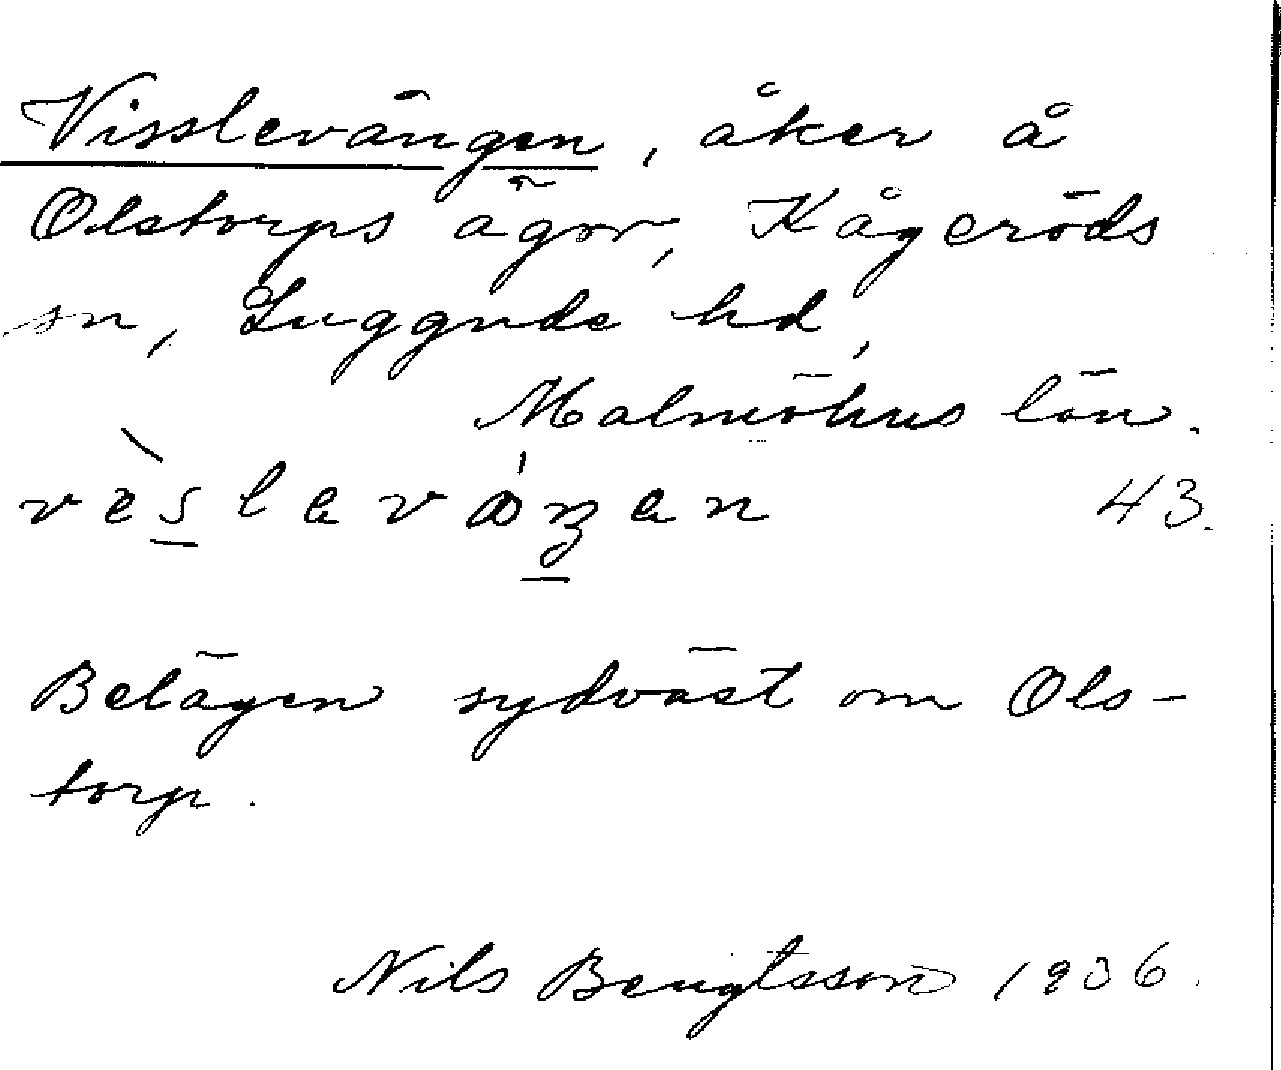 Visslevången, åker å
Olstorps ägor, Kågeröds
sn, Luggude hd,
Malmöhus län.
43.
Belägen sydväst om Ols-
torp.
Nils Bengtsson 1936.